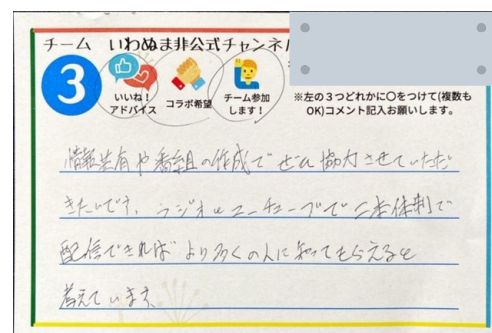 チーム いわぬま非公式チャンネル
3
いいね!
アドバイス
コラボ希望
チーム参加
します!
※左の3つどれかに○をつけて(複数も
OK)コメント記入お願いします。
情報共有や番組の作成でぜひ協力させていただ
きたいです。ラジオとユーチューブで二本体制で
配信できれば より多くの人に知ってもらえると
考えています